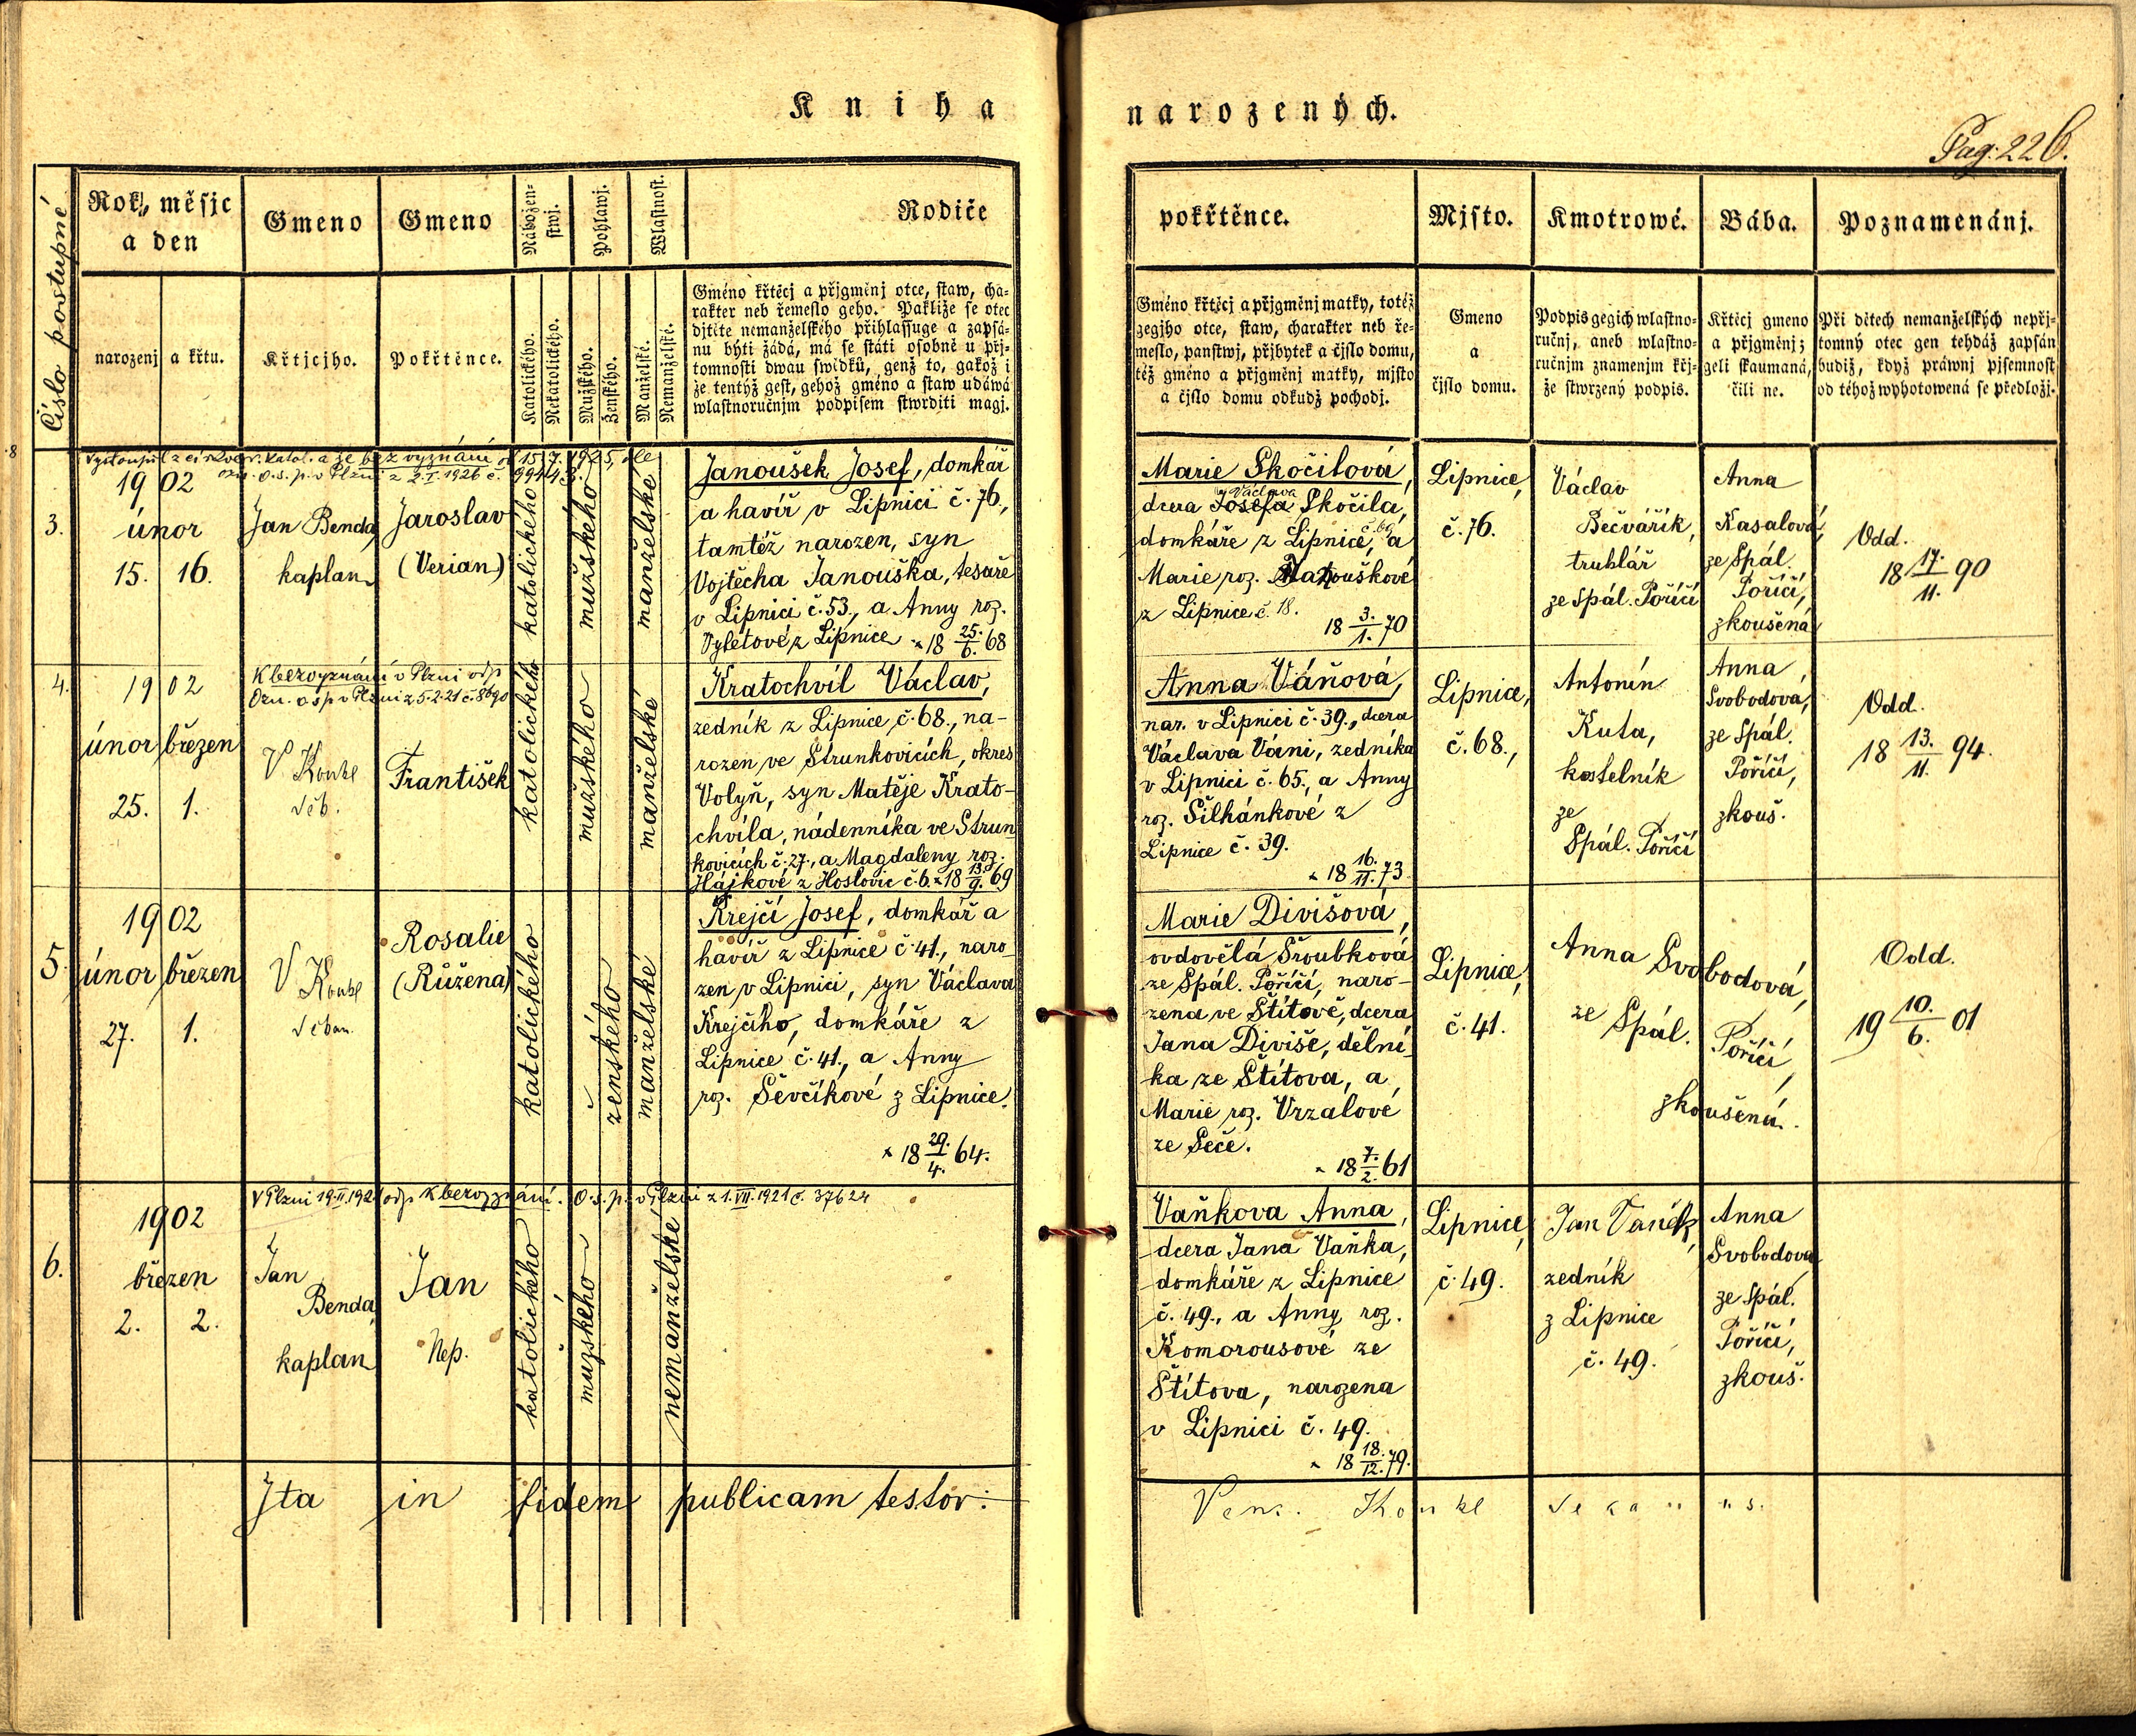 Kniha narozených.
Pag: 226.
Číslo postupné
Rok, měsjc
a den
Gmeno
Gmeno
Nábožen-
stwj.
Pohlawj.
Wlastnost.
Rodiče
pokřtěnce.
Mjsto.
Kmotrowé.
Bába.
Poznamenánj.
narozenj
a křtu.
Křtjcjho.
Pokřtěnce.
Katolického.
Nekatolického.
Mužského.
Ženského.
Manželské.
Nemanželské.
Gméno křtěcj a přjgměnj otce, staw, cha-
rakter neb řemeslo geho. Pakliže se otec
djtěte nemanželského přihlassuge a zapsá-
nu býti žádá, má se státi osobně u přj-
tomnosti dwau swědků, genž to, gakož i
že tentýž gest, gehož gméno a staw udáwá
wlastnoručnjm podpisem stwrditi magj.
Gméno křtěcj a přjgměnj matky, totéž
gegjho otce, staw, charakter neb ře-
meslo, panstwj, přjbytek a čjslo domu,
též gméno a přjgměnj matky, mjsto
a čjslo domu odkudž pocházj.
Gmeno
a
čjslo domu.
Podpis gegich wlastno-
ručnj, aneb wlastno-
ručnjm znamenjm křj-
že stwrzený podpis.
Křtěcj gmeno
a přjgměnj;
geli skaumaná,
čili ne.
Při dětech nemanželských nepřj-
tomný otec gen tehdáž zapsán
budiž, když práwnj pjsemnost
od téhož wyhotowená se předložj.
Vystoupil z církve r. katol. a je bez vyznání od 15. 7. 1925, dle
ozn. o. s. p. v Plzni z 2. I. 1926 č.
3.
1902
únor
15. 16.
Jan Benda
kaplan
Jaroslav
(Verian)
katolického
mužského
manželské
Janoušek Josef, domkář
a havíř v Lipnici č. 76.,
tamtéž narozen, syn
Vojtěcha Janouška, tesaře
v Lipnici č. 53., a Anny roz.
Vyletové z Lipnice * 18 25./6. 68
Marie Skočilová,
Václava
dcera Josefa Skočila,
domkáře z Lipnice, č. 69 a
Marie roz. Matouškové
z Lipnice č. 18.
18 3./1. 70
Lipnice,
č. 76.
Václav
Bečvářík,
truhlář
ze Spál. Poříčí
Anna
Kasalová,
ze Spál.
Poříčí,
zkoušená
Odd.
18 17./11. 90
4.
1902
únor březen
25. 1.
K bezvyznání v Plzni odp
Ozn. o s p v Plzni z 5. 2. 21 č. 8690
V Koukl
děk.
František
katolického
mužského
manželské
Kratochvíl Václav,
zedník z Lipnice č. 68., na-
rozen ve Strunkovicích, okres
Volyň, syn Matěje Krato-
chvíla, nádenníka ve Strun
kovicích č. 27., a Magdaleny roz.
Hájkové z Hoslovic č. 6. * 18 13./9. 69
Anna Váňová,
nar. v Lipnici č. 39., dcera
Václava Váni, zedníka
v Lipnici č. 65., a Anny
roz. Šilhánkové z
Lipnice č. 39.
* 18 16./11. 73
Lipnice,
č. 68.,
Antonín
Kuta,
kostelník
ze
Spál. Poříčí
Anna
Svobodova,
ze Spál.
Poříčí,
zkouš.
Odd.
18 13./11. 94.
5.
1902
únor březen
27. 1.
V Koukl
děkan.
Rosalie
(Růžena)
katolického
ženského
manželské
Krejčí Josef, domkář a
havíř z Lipnice č. 41., naro
zen v Lipnici, syn Václava
Krejčího, domkáře z
Lipnice č. 41., a Anny
roz. Ševčíkové z Lipnice.
* 18 29./4. 64.
Marie Divišová,
ovdovělá Šroubková
ze Spál. Poříčí, naro-
zena ve Štítově, dcera
Jana Diviše, dělní
ka ze Štítova, a
Marie roz. Vrzalové
ze Seče.
* 18 7./2. 61
Lipnice,
č. 41.
Anna Svobodová,
ze Spál. Poříčí,
zkoušená.
Odd.
19 10./6. 01
V Plzni 19. II. 1921 odp k bezvyznání. O. s. p. v Plzni z 1. VII. 1921 č. 37624
6.
1902
březen
2. 2.
Jan
Benda,
kaplan
Jan
Nep.
katolického
mužského
nemanželské
Vaňkova Anna,
dcera Jana Vaňka,
domkáře z Lipnice
č. 49., a Anny roz.
Komorousové ze
Štítova, narozena
v Lipnici č. 49.
* 18 18./12. 79.
Lipnice,
č. 49.
Jan Vaněk,
zedník
z Lipnice
č. 49.
Anna
Svobodova
ze Spál.
Poříčí,
zkouš.
Ita in fidem publicam testor:
Venc. Koukl dekanus.